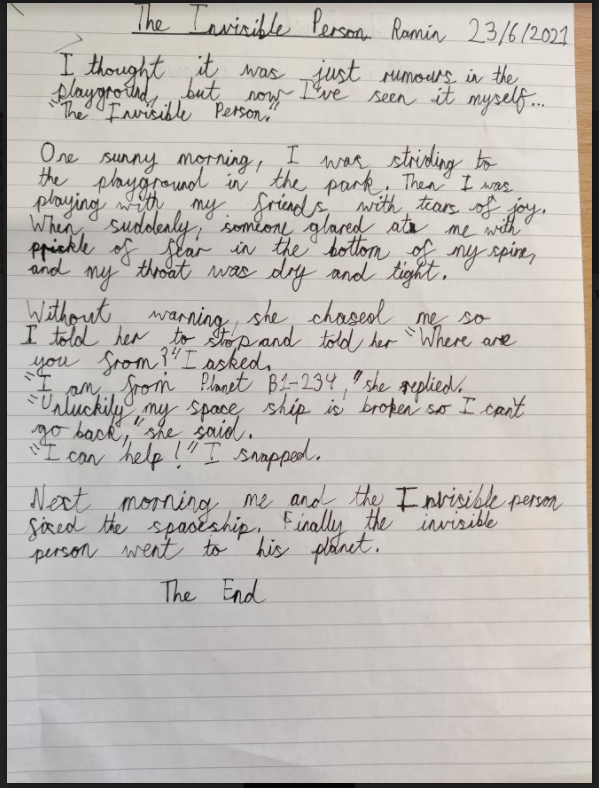 The Invisible Person Ramin 23/6/2021
I thought it was just rumours in the
playground, but now I've seen it myself...
"The Invisible Person."
One sunny morning, I was striding to
the playground in the park. Then I was
playing with my friends with tears of joy.
When suddenly, someone glared at me with
prickle of fear in the bottom of my spine,
and my throat was dry and tight.
Without warning, she chased me so
I told her to stop and told her "Where are
you from?" I asked.
"I am from Planet B1-234," she replied.
"Unluckily my space ship is broken so I can't
go back," she said.
"I can help!" I snapped.
Next morning me and the Invisible person
fixed the spaceship. Finally the invisible
person went to his planet.
The End